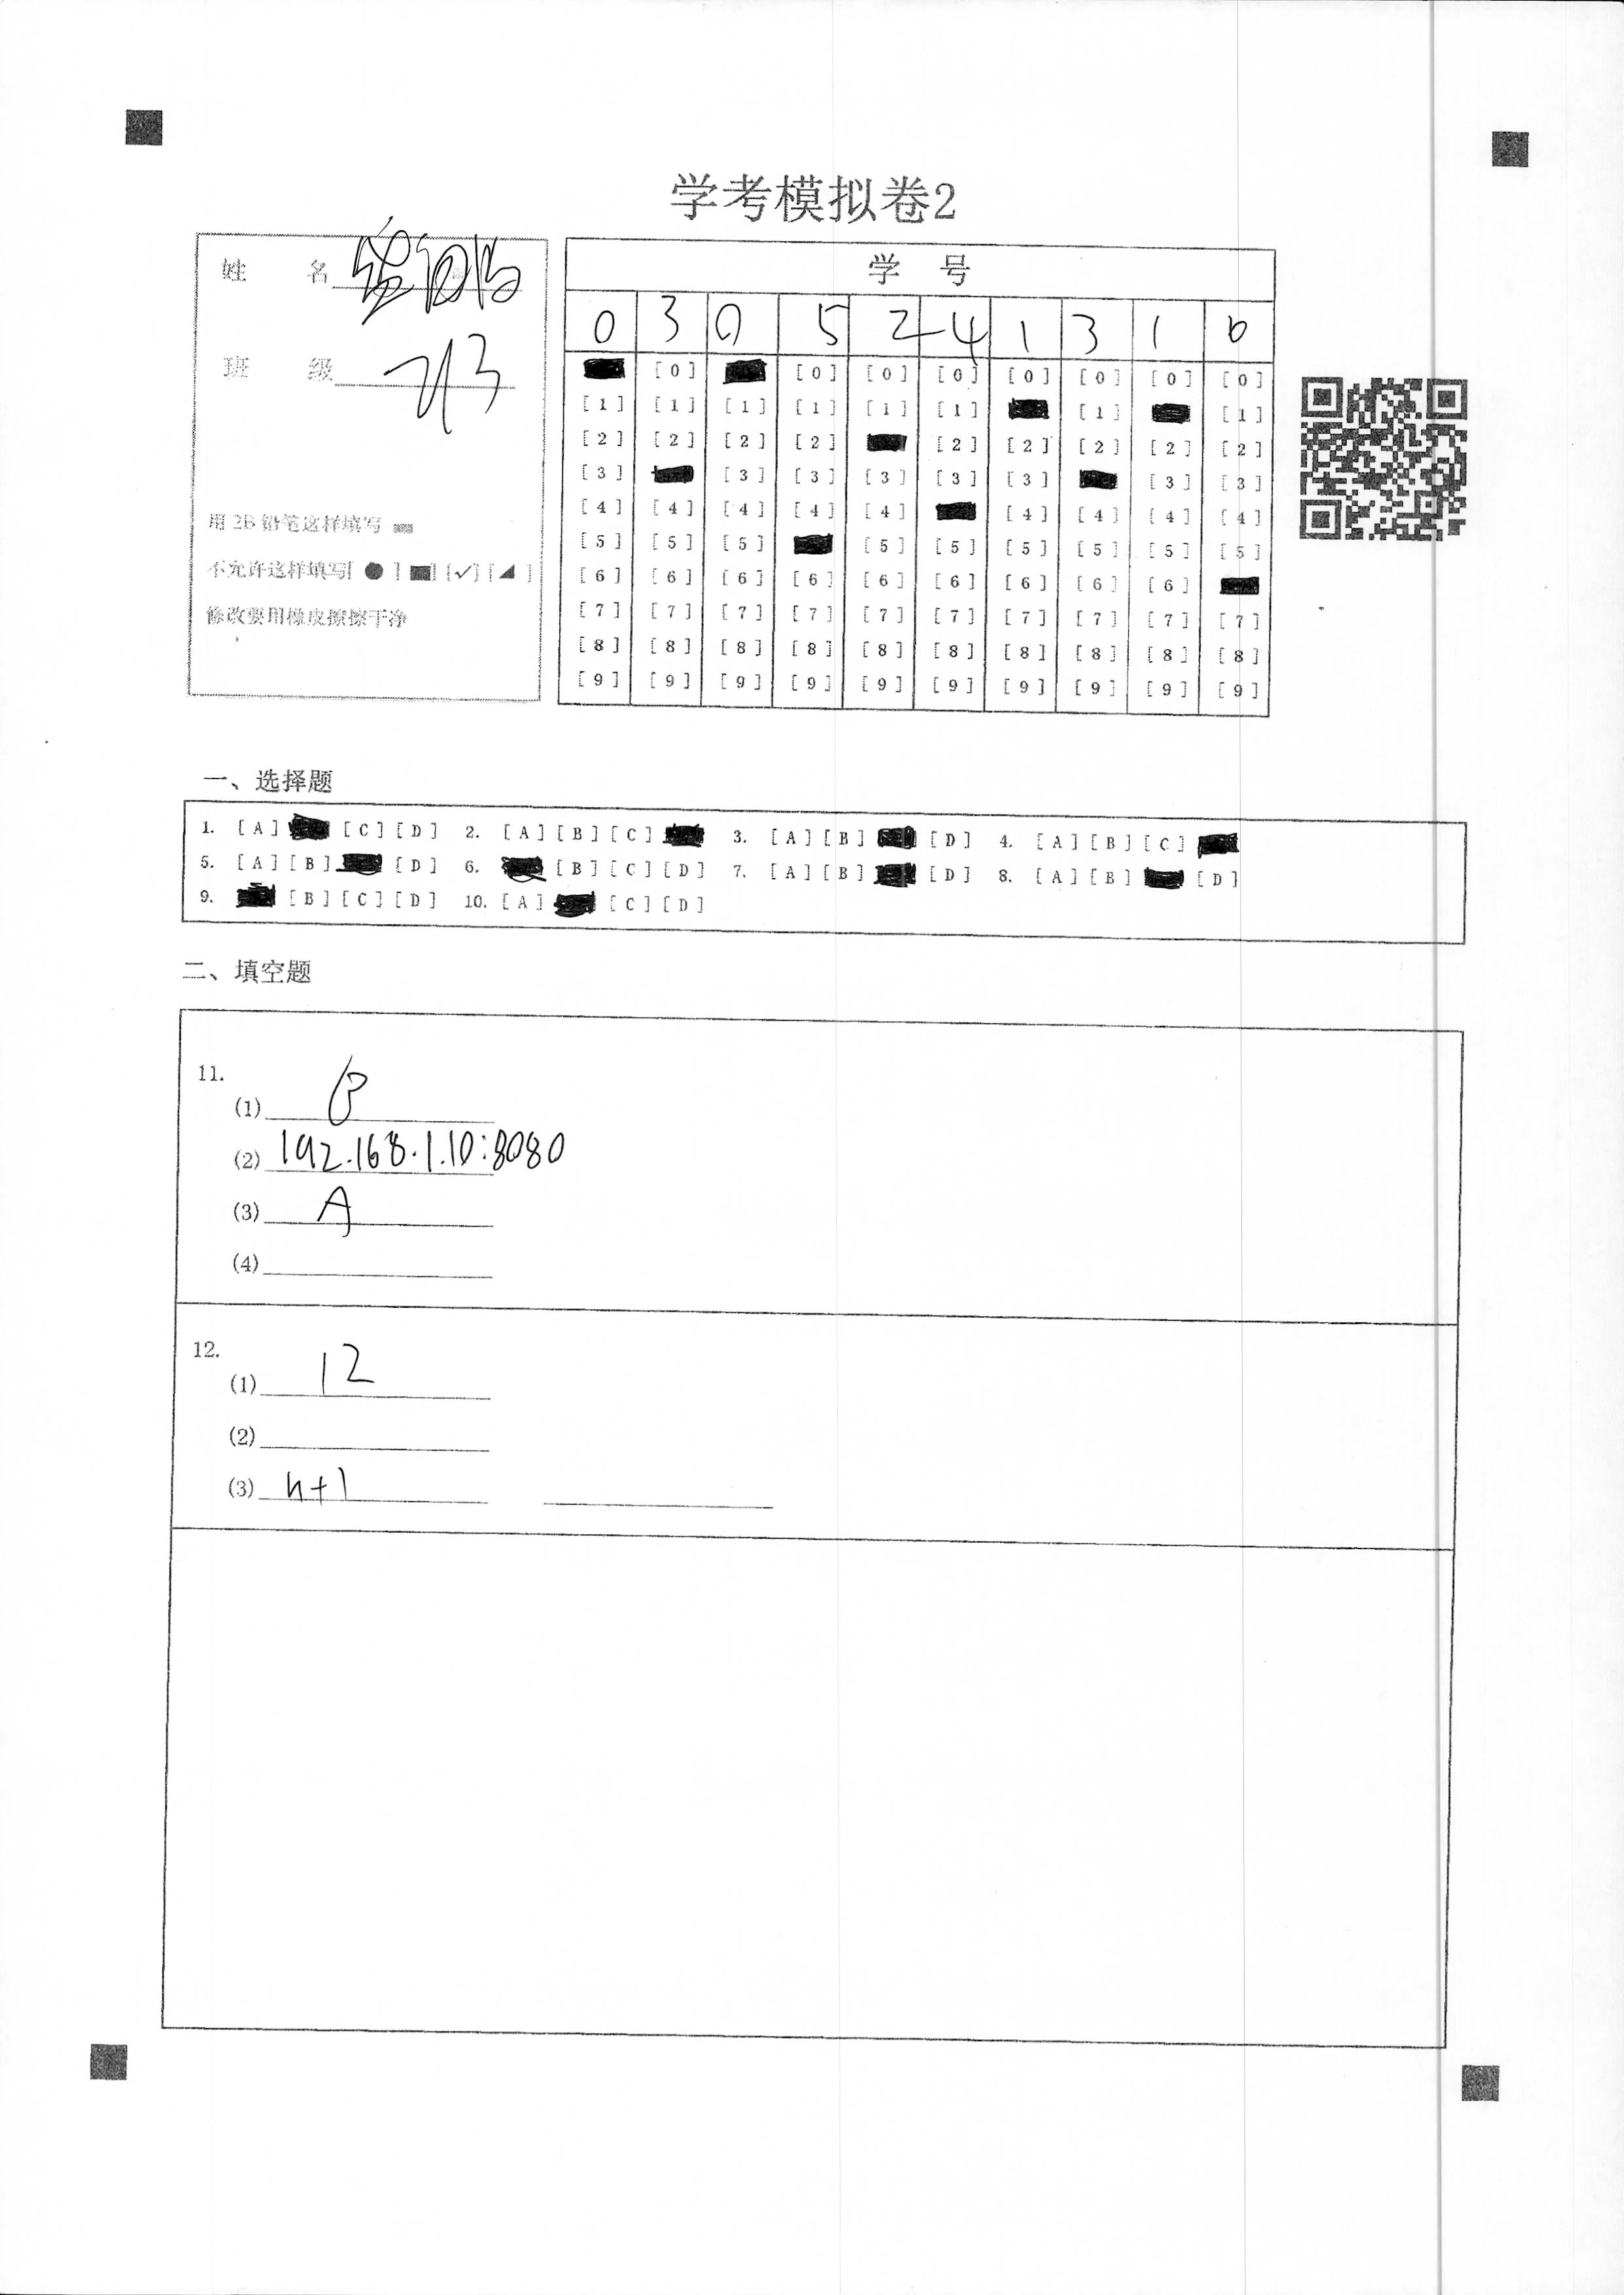 学考模拟卷2
姓 名
班 级 713
用 2B 铅笔这样填写
不允许这样填写[ ● ] [■] [✓] [◢ ]
修改要用橡皮擦擦干净
学 号
0 3 0 5 2 4 1 3 1 6
[0] [0] [0] [0] [0] [0] [0] [0]
[1] [1] [1] [1] [1] [1] [1] [1]
[2] [2] [2] [2] [2] [2] [2] [2] [2]
[3] [3] [3] [3] [3] [3] [3] [3]
[4] [4] [4] [4] [4] [4] [4] [4] [4]
[5] [5] [5] [5] [5] [5] [5] [5] [5]
[6] [6] [6] [6] [6] [6] [6] [6] [6]
[7] [7] [7] [7] [7] [7] [7] [7] [7] [7]
[8] [8] [8] [8] [8] [8] [8] [8] [8] [8]
[9] [9] [9] [9] [9] [9] [9] [9] [9] [9]
一、选择题
1. [A] [C] [D] 2. [A] [B] [C] 3. [A] [B] [D] 4. [A] [B] [C]
5. [A] [B] [D] 6. [B] [C] [D] 7. [A] [B] [D] 8. [A] [B] [D]
9. [B] [C] [D] 10. [A] [C] [D]
二、填空题
11.
(1) B
(2) 192.168.1.10:8080
(3) A
(4)
12.
(1) 12
(2)
(3) n+1